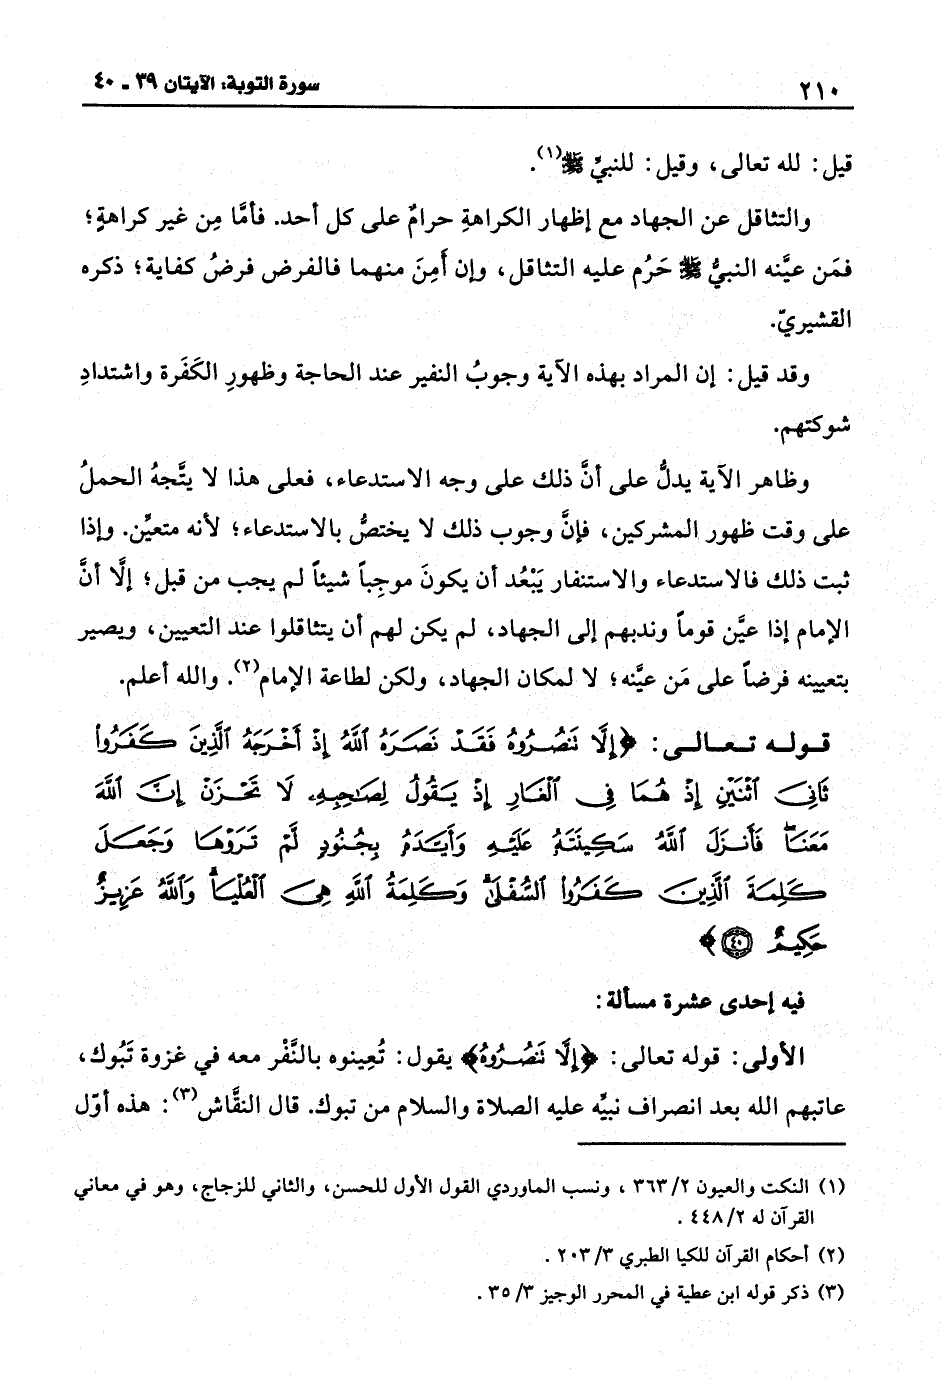 ٢١٠ سورة التوبة: الآيتان ٣٩ ـ ٤٠
قيل: لله تعالى، وقيل: للنبيِّ ﷺ(١).
والتثاقل عن الجهاد مع إظهار الكراهةِ حرامٌ على كل أحد. فأمَّا مِن غير كراهةٍ؛
فمَن عيَّنه النبيُّ ﷺ حَرُم عليه التثاقل، وإن أَمِنَ منهما فالفرض فرضُ كفاية؛ ذكره
القشيريّ.
وقد قيل: إن المراد بهذه الآية وجوبُ النفير عند الحاجة وظهورِ الكَفَرة واشتدادِ
شوكتهم.
وظاهر الآية يدلُّ على أنَّ ذلك على وجه الاستدعاء، فعلى هذا لا يتَّجهُ الحملُ
على وقت ظهور المشركين، فإنَّ وجوب ذلك لا يختصُّ بالاستدعاء؛ لأنه متعيِّن. وإذا
ثبت ذلك فالاستدعاء والاستنفار يَبْعُد أن يكونَ موجِباً شيئاً لم يجب من قبل؛ إلَّا أنَّ
الإمام إذا عيَّن قوماً وندبهم إلى الجهاد، لم يكن لهم أن يتثاقلوا عند التعيين، ويصير
بتعيينه فرضاً على مَن عيَّنه؛ لا لمكان الجهاد، ولكن لطاعة الإمام(٢). والله أعلم.
قوله تعالى: ﴿إِلَّا تَنصُرُوهُ فَقَدْ نَصَرَهُ ٱللَّهُ إِذْ أَخْرَجَهُ ٱلَّذِينَ كَفَرُوا۟
ثَانِىَ ٱثْنَيْنِ إِذْ هُمَا فِى ٱلْغَارِ إِذْ يَقُولُ لِصَٰحِبِهِۦ لَا تَحْزَنْ إِنَّ ٱللَّهَ
مَعَنَا ۖ فَأَنزَلَ ٱللَّهُ سَكِينَتَهُۥ عَلَيْهِ وَأَيَّدَهُۥ بِجُنُودٍ لَّمْ تَرَوْهَا وَجَعَلَ
كَلِمَةَ ٱلَّذِينَ كَفَرُوا۟ ٱلسُّفْلَىٰ ۗ وَكَلِمَةُ ٱللَّهِ هِىَ ٱلْعُلْيَا ۗ وَٱللَّهُ عَزِيزٌ
حَكِيمٌ ٤٠﴾
فيه إحدى عشرة مسألة:
الأولى: قوله تعالى: ﴿إِلَّا تَنصُرُوهُ﴾ يقول: تُعِينوه بالنَّفْر معه في غزوة تَبُوك،
عاتبهم الله بعد انصراف نبيِّه عليه الصلاة والسلام من تبوك. قال النقَّاش(٣): هذه أوّل
(١) النكت والعيون ٣٦٣/٢ ، ونسب الماوردي القول الأول للحسن، والثاني للزجاج، وهو في معاني
القرآن له ٤٤٨/٢ .
(٢) أحكام القرآن للكيا الطبري ٢٠٣/٣ .
(٣) ذكر قوله ابن عطية في المحرر الوجيز ٣٥/٣ .